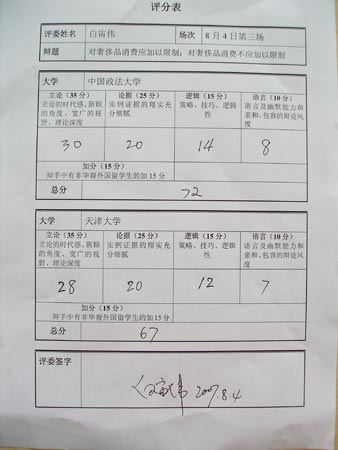 评分表
评委姓名 白宙伟 场次 8月4日第三场
辩题 对奢侈品消费应加以限制；对奢侈品消费不应加以限制
大学 中国政法大学
立论（35分） 论据（25分） 逻辑（15分） 语言（10分）
立论的时代感、新颖 实例证据的翔实充 策略、技巧、逻辑 语言及幽默能力和
的角度、宽广的视 分细腻 性 亲和，包容的辩论风
野、理论深度 度
30 20 14 8
加分（15分）
辩手中有非华裔外国留学生的加15分
总分 72
大学 天津大学
立论（35分） 论据（25分） 逻辑（15分） 语言（10分）
立论的时代感、新颖 实例证据的翔实充 策略、技巧、逻辑 语言及幽默能力和
的角度、宽广的视 分细腻 性 亲和，包容的辩论风
野、理论深度 度
28 20 12 7
加分（15分）
辩手中有非华裔外国留学生的加15分
总分 67
评委签字 2007.8.4